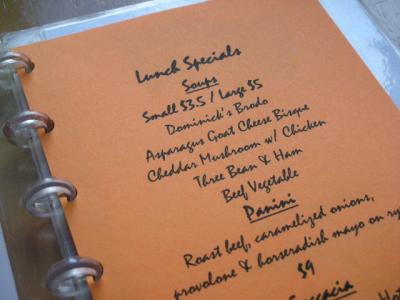 Lunch Specials
Soups
Small $3.5 / Large $5
Dominick's Brodo
Asparagus Goat Cheese Bisque
Cheddar Mushroom w/ Chicken
Three Bean & Ham
Beef Vegetable
Panini
Roast beef, caramelized onions,
provolone & horseradish mayo on ry
$9